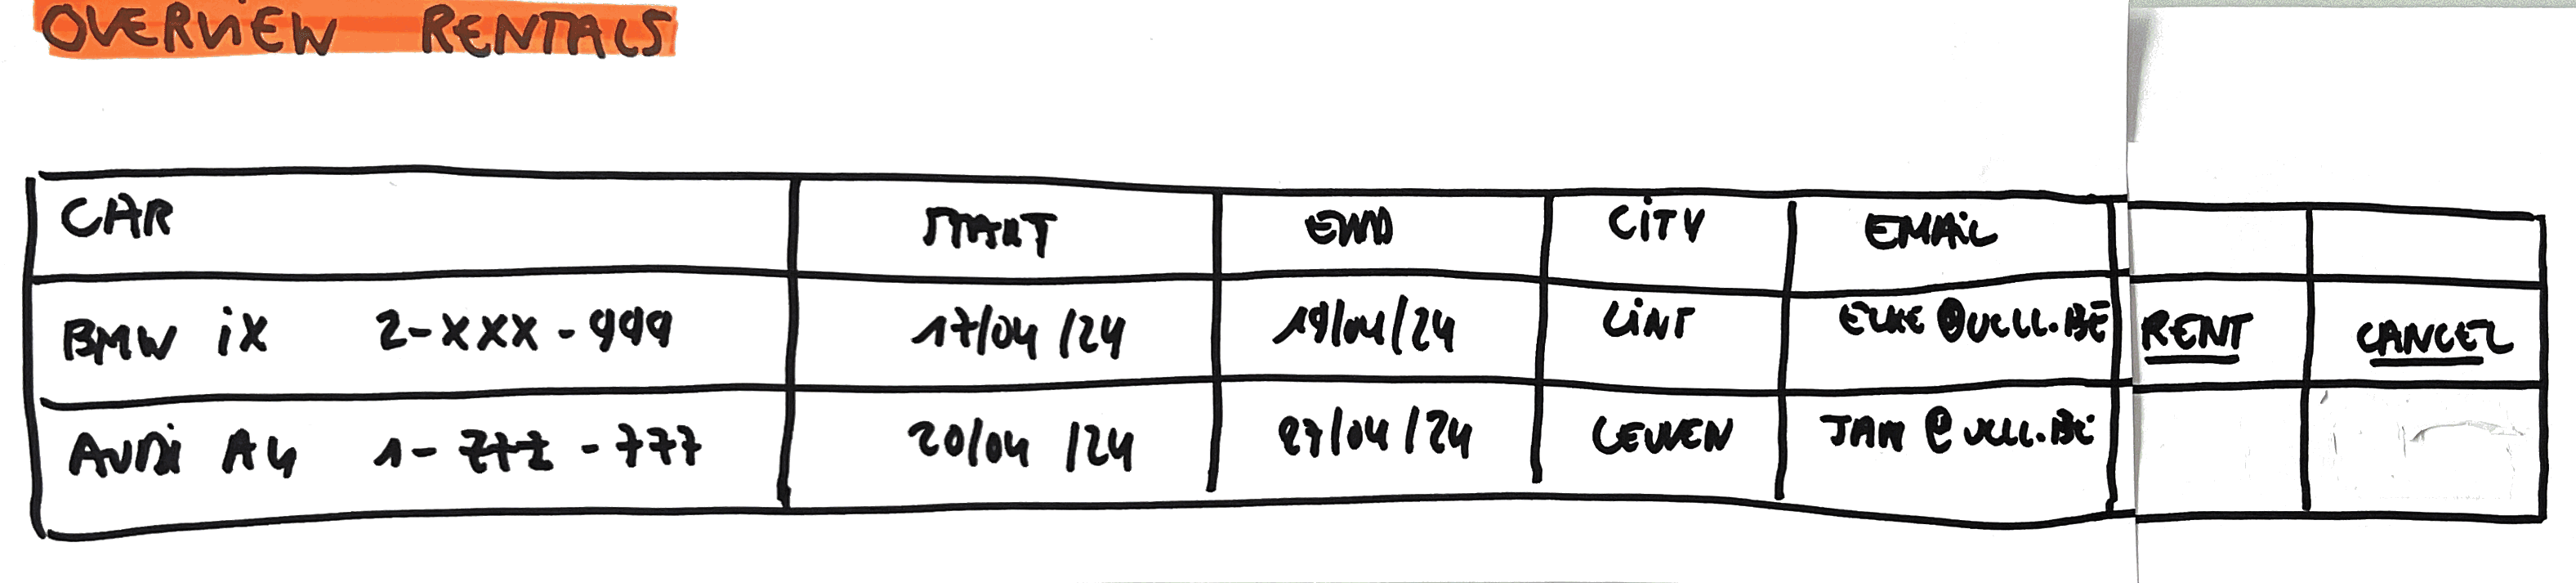 OVERVIEW RENTALS
CAR START END CITY EMAIL
BMW iX 2-XXX-999 17/04/24 19/04/24 LINT ELKE@UCLL.BE RENT CANCEL
AUDI A4 1-ZZZ-777 20/04/24 27/04/24 LEUVEN JAN@UCLL.BE